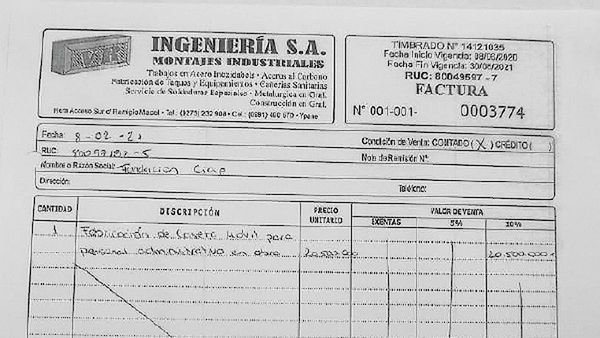 INGENIERÍA S.A.
MONTAJES INDUSTRIALES
Trabajos en Acero Inoxidable - Aceros al Carbono
Fabricación de Taques y Equipamientos - Cañerías Sanitarias
Servicio de Soldadores Especiales - Metalúrgica en Gral.
Construcción en Gral.
TIMBRADO N° 14121035
Fecha Inicio Vigencia:
Fecha Fin Vigencia: 30/06/2021
RUC: 80049597-7
FACTURA
N° 001-001- 0003774
Fecha: 8-02-21
Condición de Venta: CONTADO (X) CRÉDITO ( )
RUC:
Nota de Remisión N°:
Nombre o Razón Social: Fundacion
Dirección:
Teléfono:
CANTIDAD DESCRIPCIÓN PRECIO UNITARIO VALOR DE VENTA
EXENTAS 5% 10%
1 Fabricación de Caseta Movil para
personal administrativo en obra 20.500.000